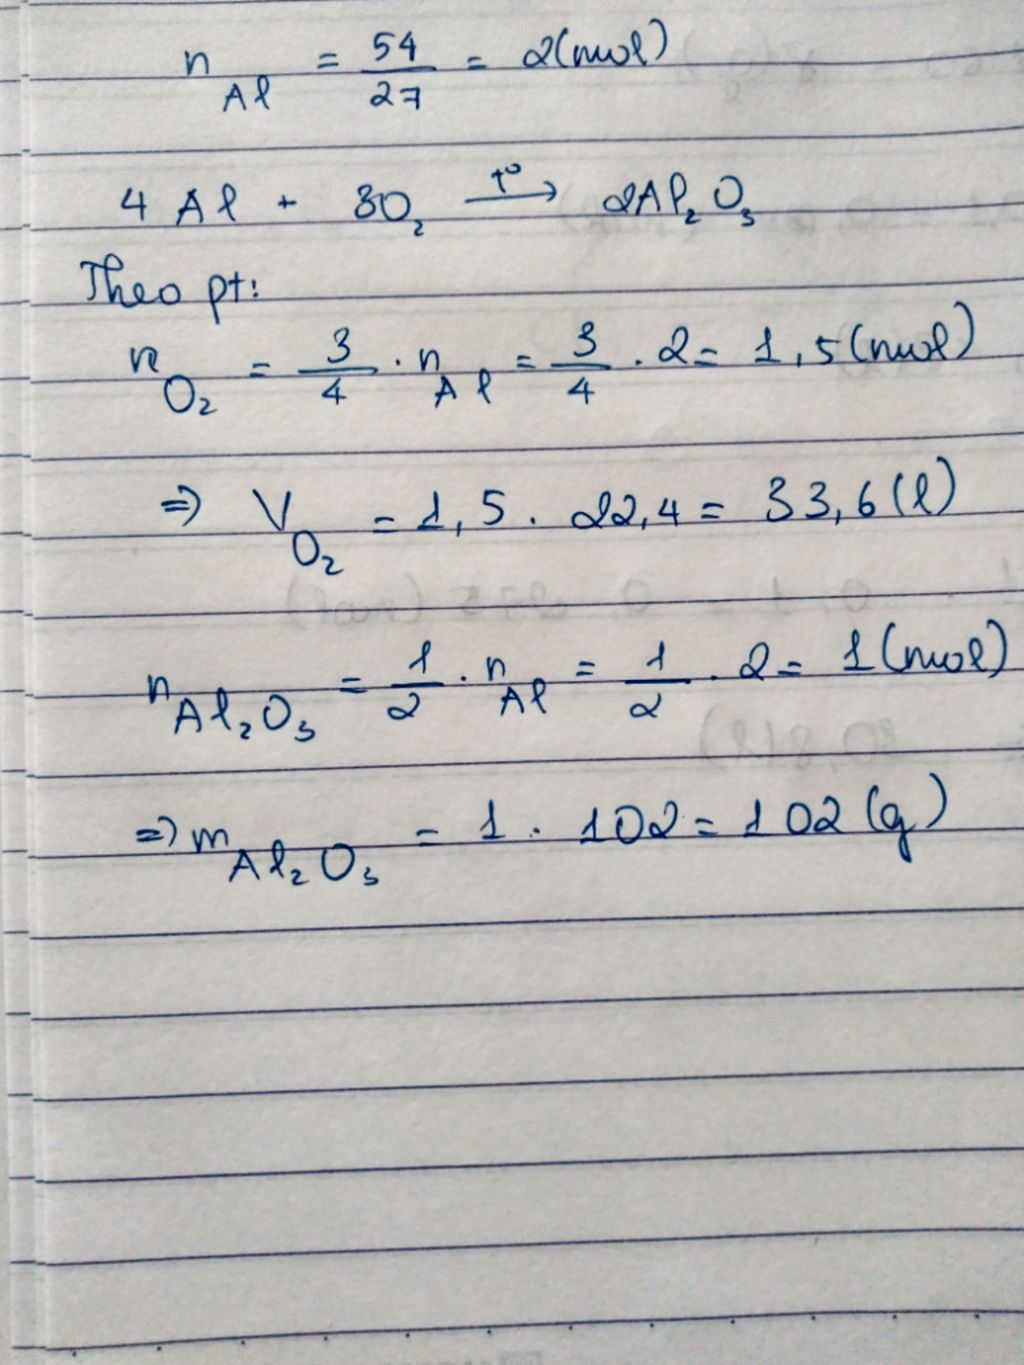 n Al = 54/27 = 2(mol)
4 Al + 3O₂ —t°→ 2Al₂O₃
Theo pt:
n O₂ = 3/4 . n Al = 3/4 . 2 = 1,5(mol)
=> V O₂ = 1,5 . 22,4 = 33,6(l)
n Al₂O₃ = 1/2 . n Al = 1/2 . 2 = 1(mol)
=> m Al₂O₃ = 1 . 102 = 102(g)